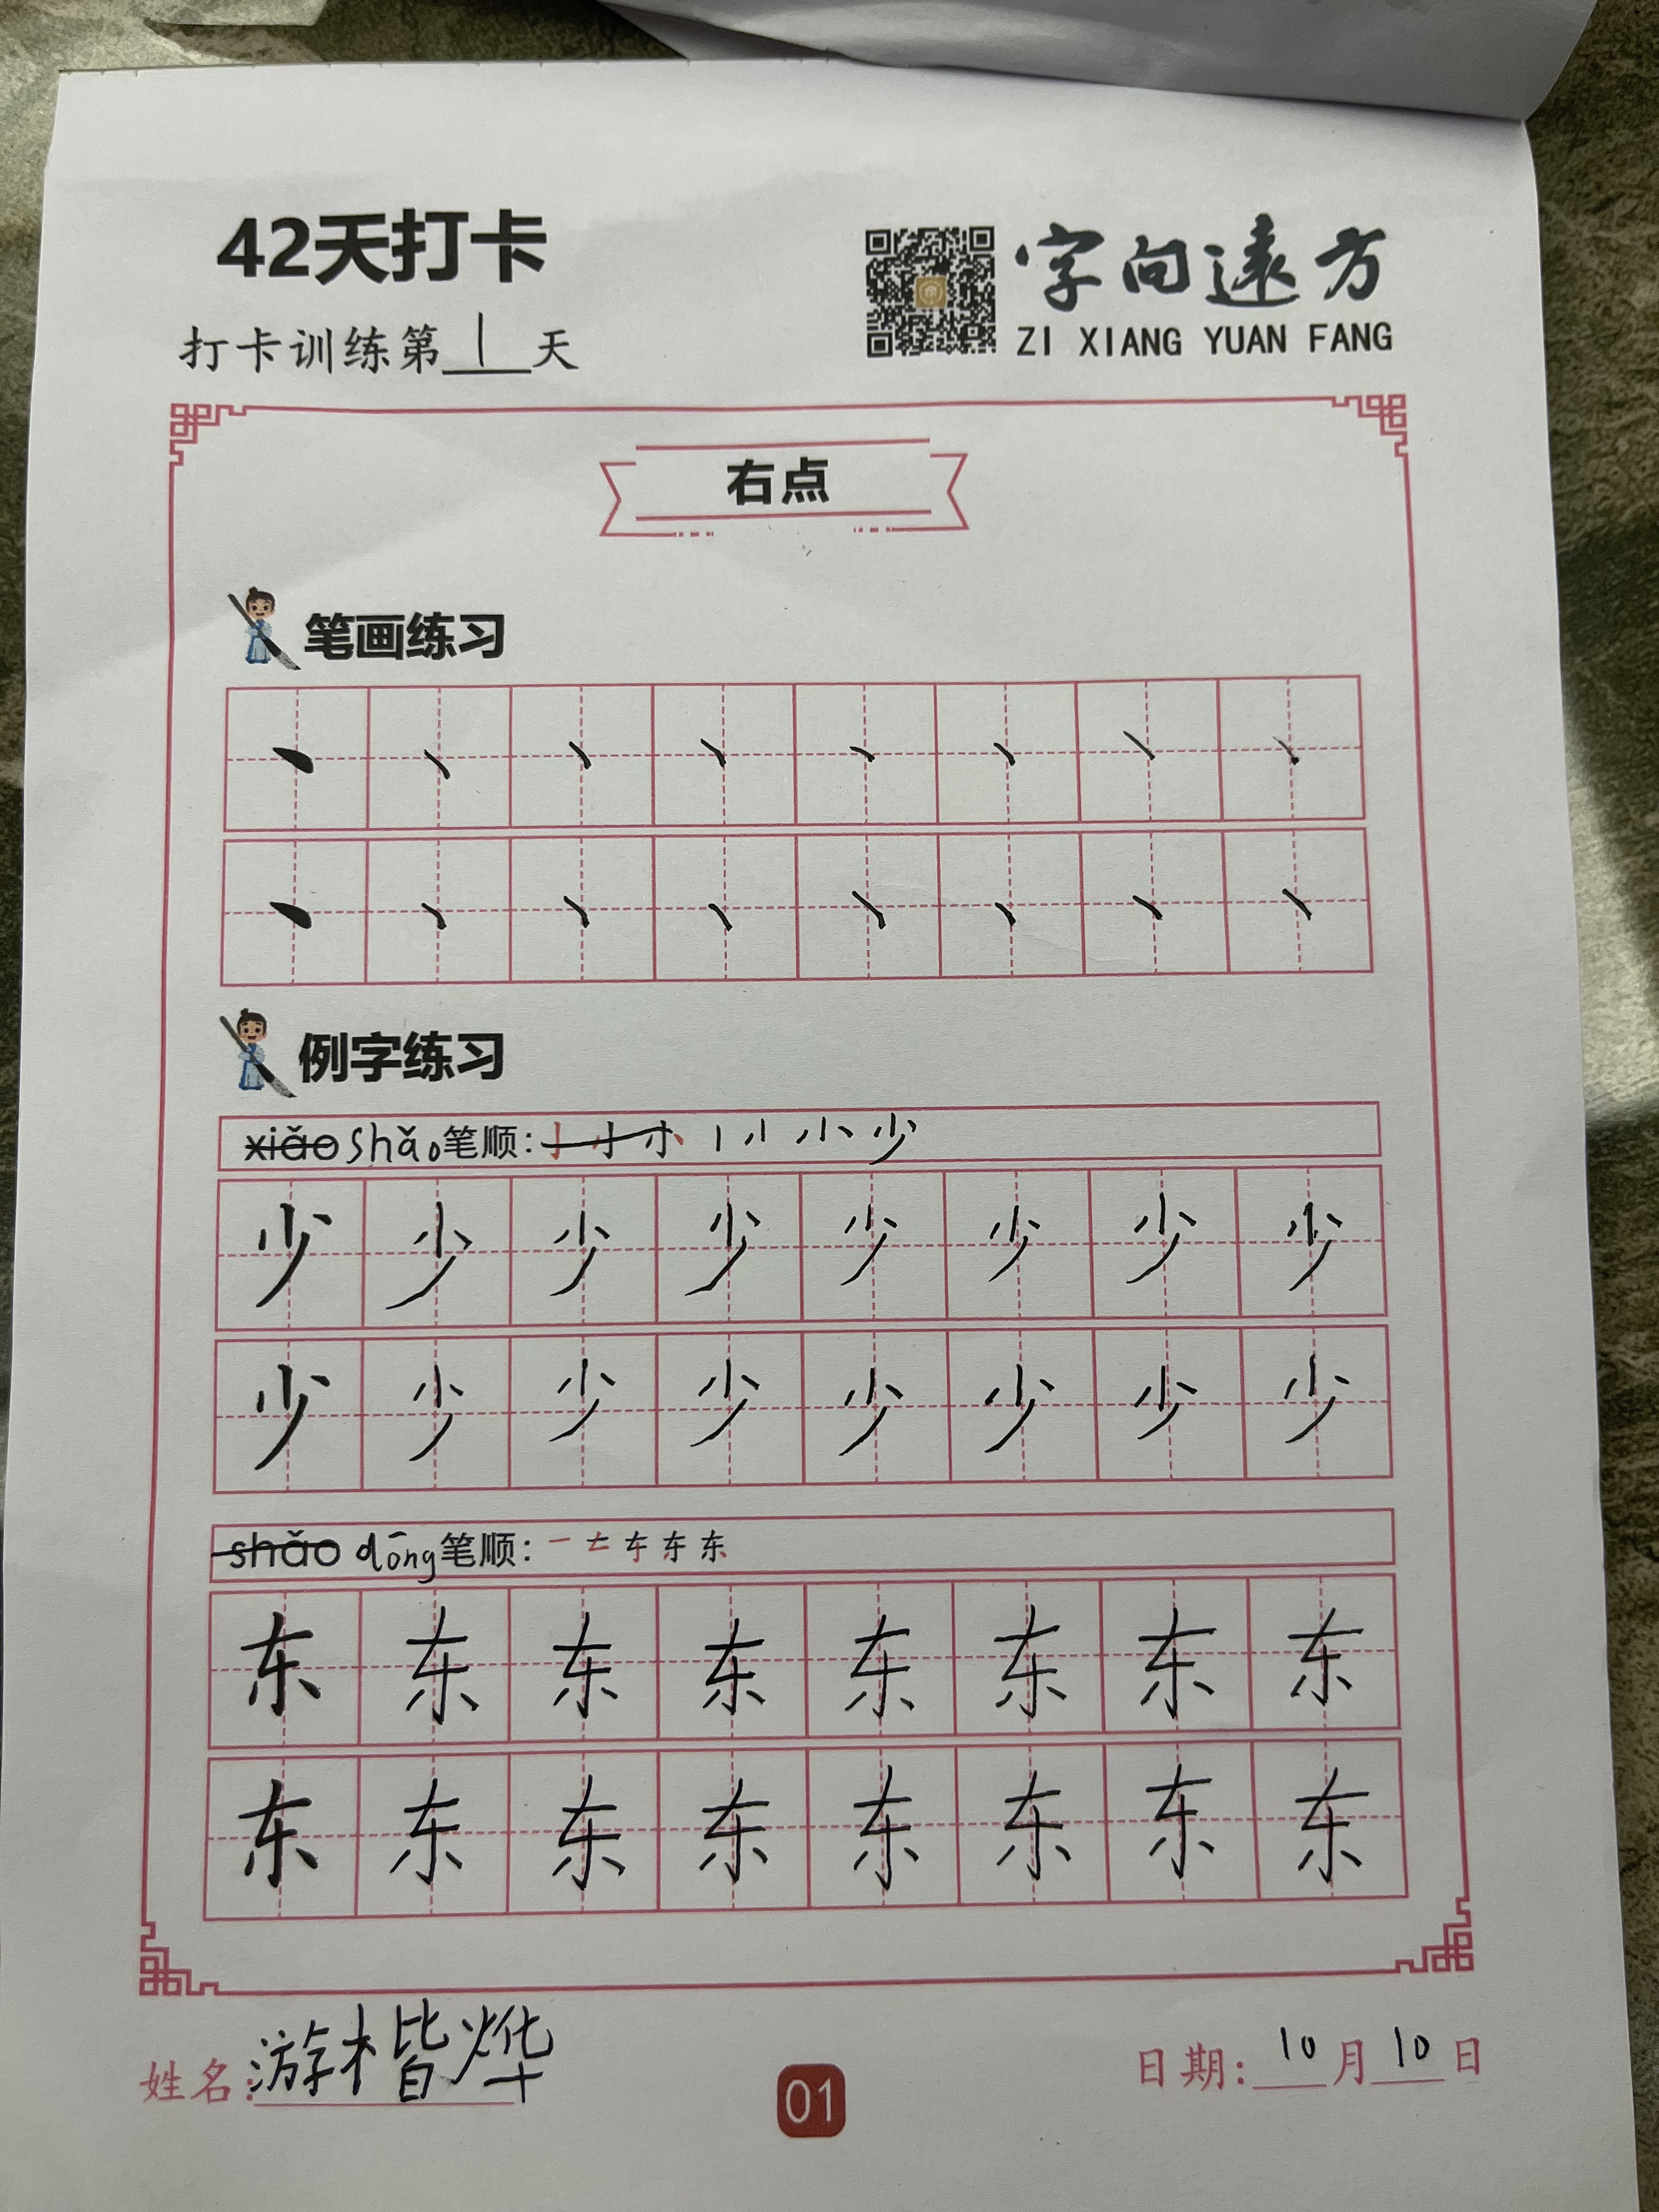 42天打卡
打卡训练第1天
字向远方
ZI XIANG YUAN FANG
右点
笔画练习
丶 丶 丶 丶 丶 丶 丶 丶
丶 丶 丶 丶 丶 丶 丶 丶
例字练习
xiǎo shǎo 笔顺: 亅 小 小 丨 小 小 少
少 少 少 少 少 少 少 少
少 少 少 少 少 少 少 少
shǎo dōng 笔顺: 一 𠂇 车 东 东
东 东 东 东 东 东 东 东
东 东 东 东 东 东 东 东
姓名: 游楷烨
01
日期: 10月10日